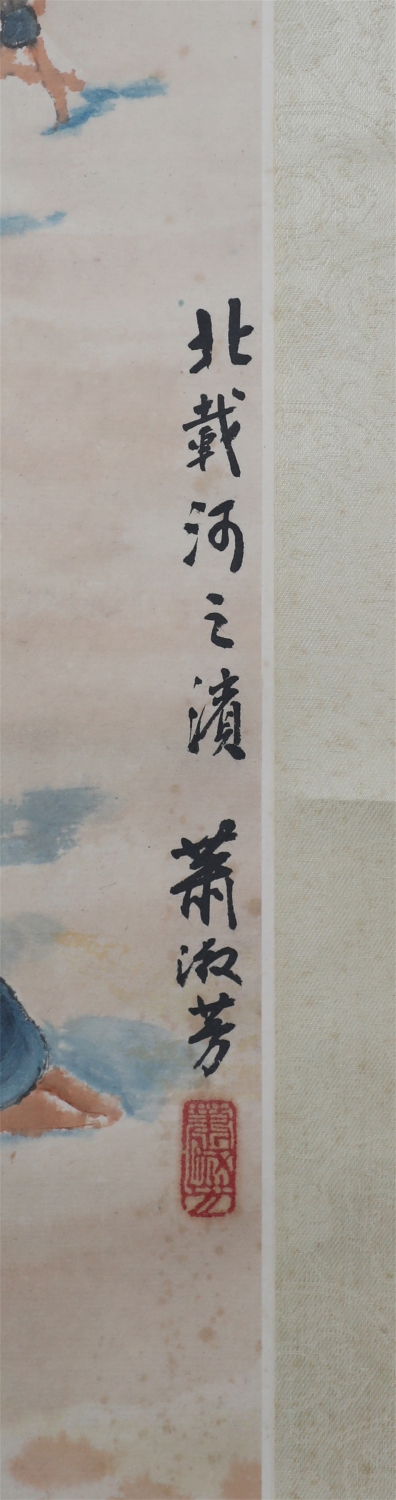 北載河之濱 蕭淑芳
蕭淑芳